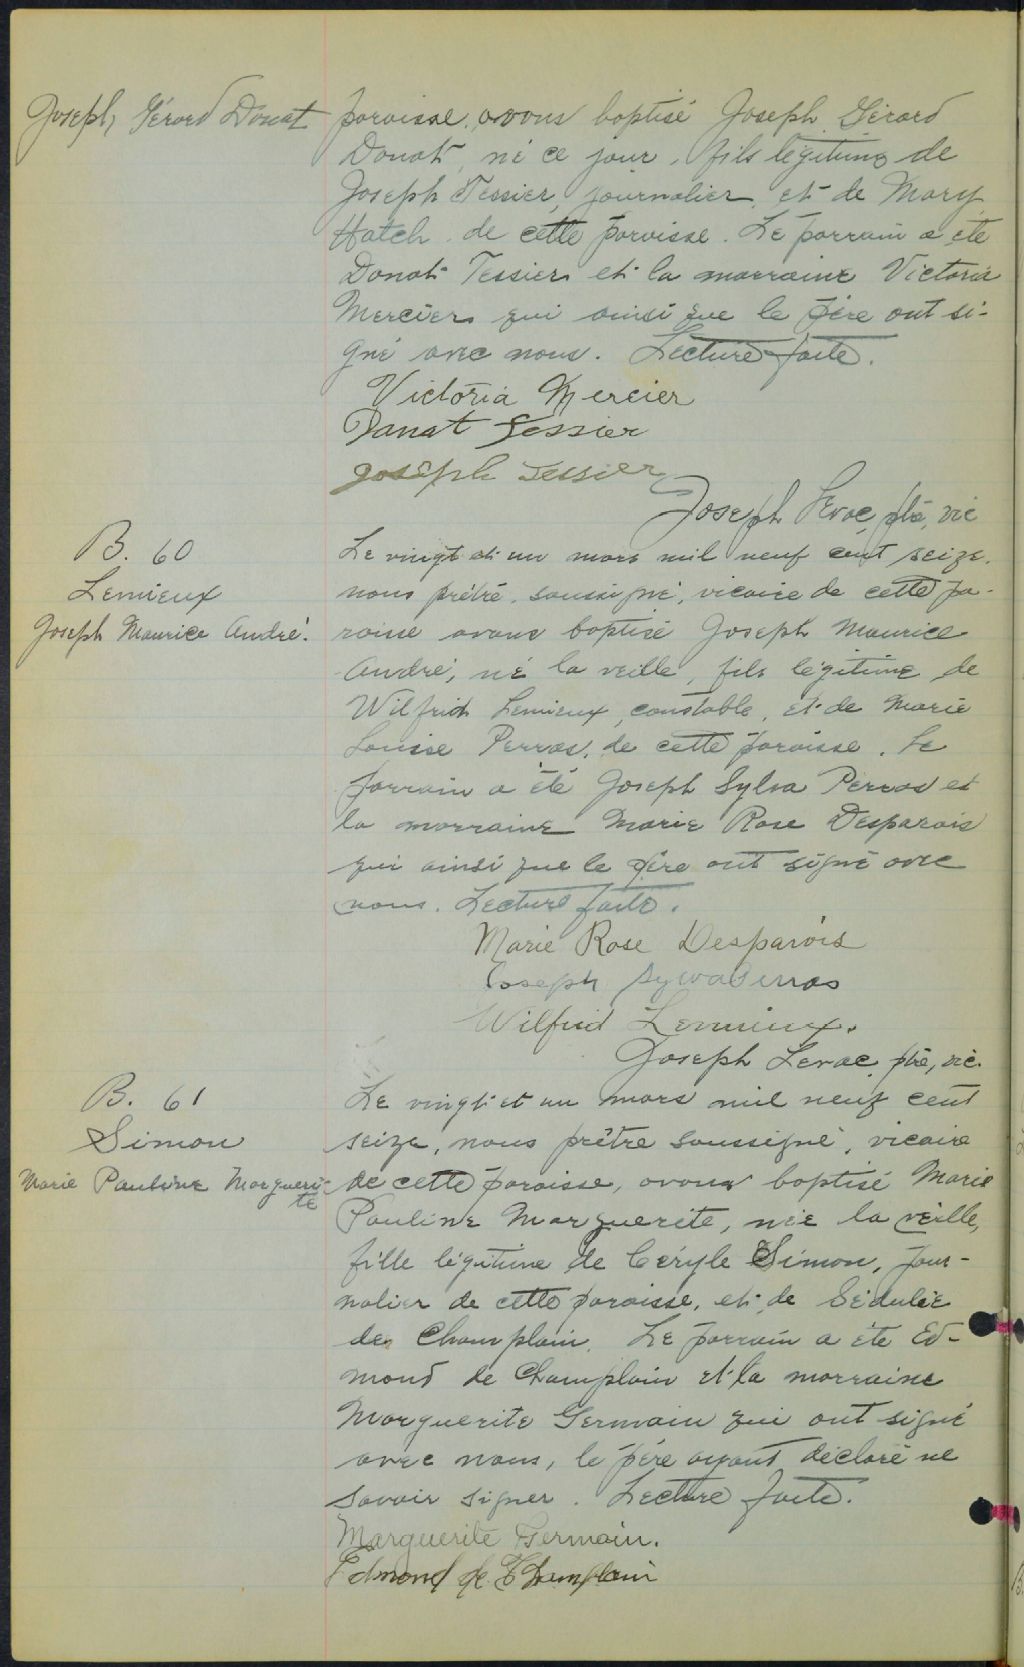 Joseph Gérard Donat
paroisse, avons baptisé Joseph Gérard
Donat, né ce jour, fils légitime de
Joseph Tessier, journalier, et de Mary
Hatch de cette paroisse. Le parrain a été
Donat Tessier et la marraine Victoria
Mercier qui ainsi que le père ont si-
gné avec nous. Lecture faite.
Victoria Mercier
Donat Tessier
Joseph Tessier
Joseph Levac ptre, vic
B. 60
Lemieux
Joseph Maurice André.
Le vingt et un mars mil neuf cent seize,
nous prêtre soussigné, vicaire de cette pa-
roisse avons baptisé Joseph Maurice
André, né la veille, fils légitime de
Wilfrid Lemieux, constable, et de Marie
Louise Perras, de cette paroisse. Le
parrain a été Joseph Sylva Perras et
la marraine Marie Rose Desparois
qui ainsi que le père ont signé avec
nous. Lecture faite.
Marie Rose Desparois
Joseph Sylva Perras
Wilfrid Lemieux.
Joseph Levac, ptre, vic.
B. 61
Simon
Marie Pauline Margueri-
te
Le vingt et un mars mil neuf cent
seize, nous prêtre soussigné, vicaire
de cette paroisse, avons baptisé Marie
Pauline Marguerite, née la veille,
fille légitime de Céryle Simon, jour-
nalier de cette paroisse, et de Sédulie
de Champlain. Le parrain a été Ed-
mond de Champlain et la marraine
Marguerite Germain qui ont signé
avec nous, le père ayant déclaré ne
savoir signer. Lecture faite.
Marguerite Germain.
Edmond de Champlain